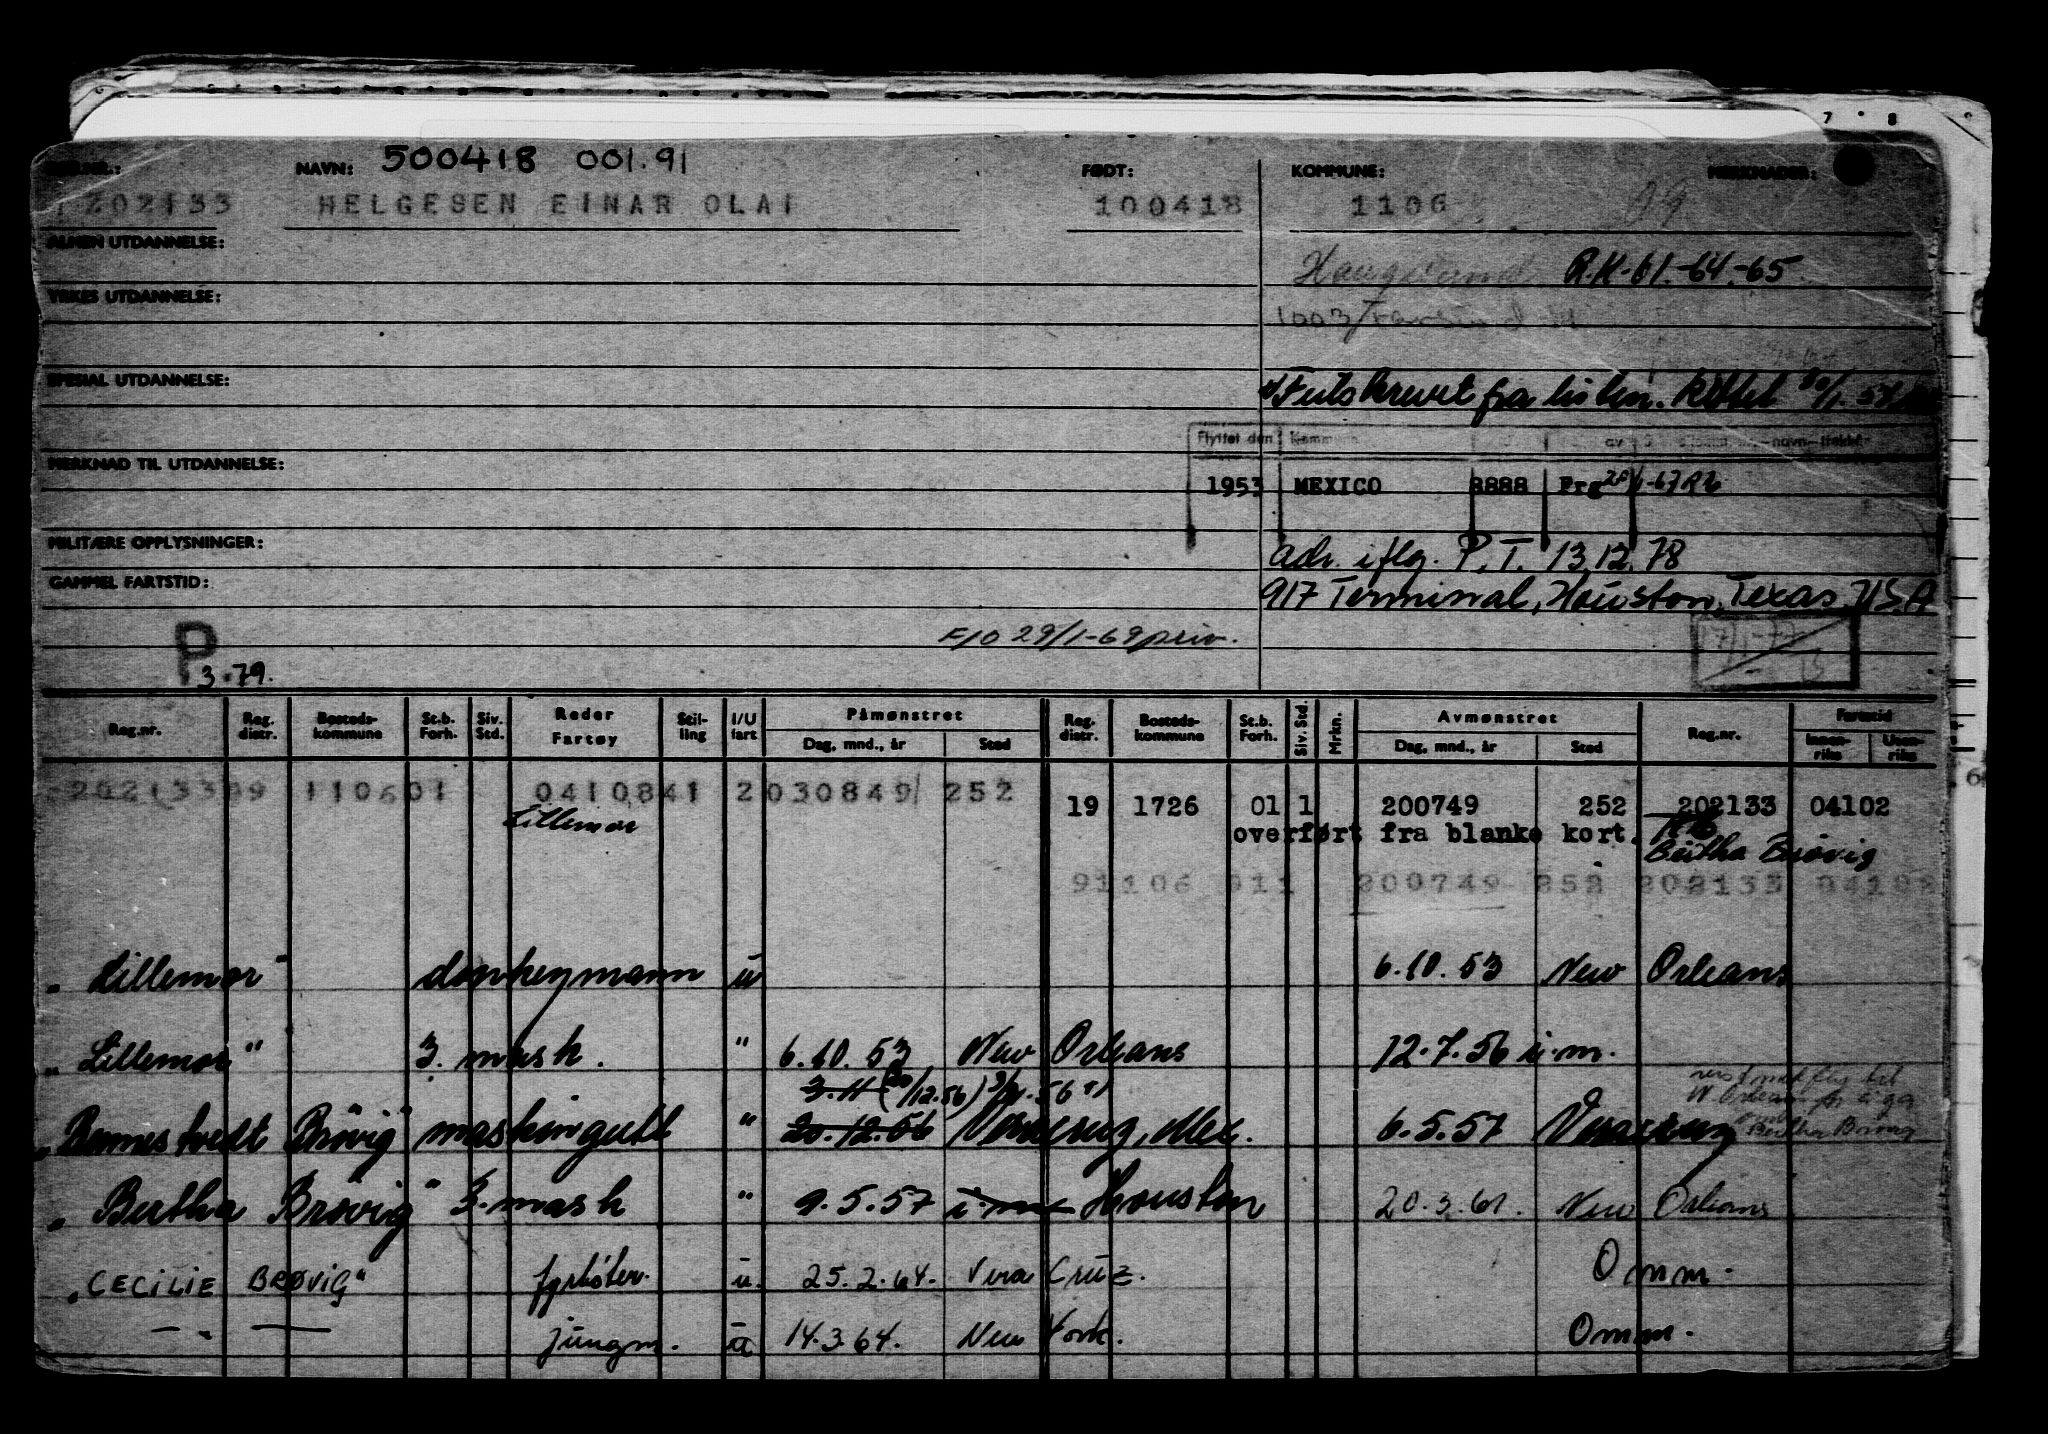 7 8
NAVN: 500418 001.91 FØDT: KOMMUNE: MERKNADER:
202133 HELGESEN EINAR OLAI 100418 1106 09
ALMEN UTDANNELSE:
R.K-61-64-65
YRKES UTDANNELSE:
1003/
SPESIAL UTDANNELSE:
Flyttet den Kommune av navn
MERKNAD TIL UTDANNELSE:
1953 MEXICO 8888 Frg
MILITÆRE OPPLYSNINGER:
adr. iflg. P.T. 13.12.78
GAMMEL FARTSTID:
917 Terminal, Houston, Texas, USA
F10 29/1-69 priv.
P
3.79.
Reg.nr. Reg. distr. Bosteds- kommune St.b. Forh. Siv. Std. Reder Fartøy Stil- ling I/U fart Påmønstret Dag, mnd., år Sted Reg. distr. Bosteds- kommune St.b. Forh. Siv. Std. Mrkn. Avmønstret Dag, mnd., år Sted Reg.nr. Fartstid Innen- riks Uten- riks
110601 0410841 2 030849 252
19 1726 01 1 200749 252 202133 04102
Lillemor
overført fra blanke kort.
Bertha Brøvig
91106 011 200749 252 202133 04102
"Lillemor" donkeymann u 6.10.53 New Orleans
"Lillemor" 3. mask. " 6.10.53 New Orleans 12.7.56 i.m.
"Rennestvedt Brøvig" maskingutt " 20.12.56 Veracruz, Mex. 6.5.57 Veracruz
"Bertha Brøvig" 3. mask " 9.5.57 Houston 20.3.61. New Orleans
"CECILIE BRØVIG" fyrbøter. u. 25.2.64. Vera Cruz. Omm.
jungm. u 14.3.64. New York. Omm.